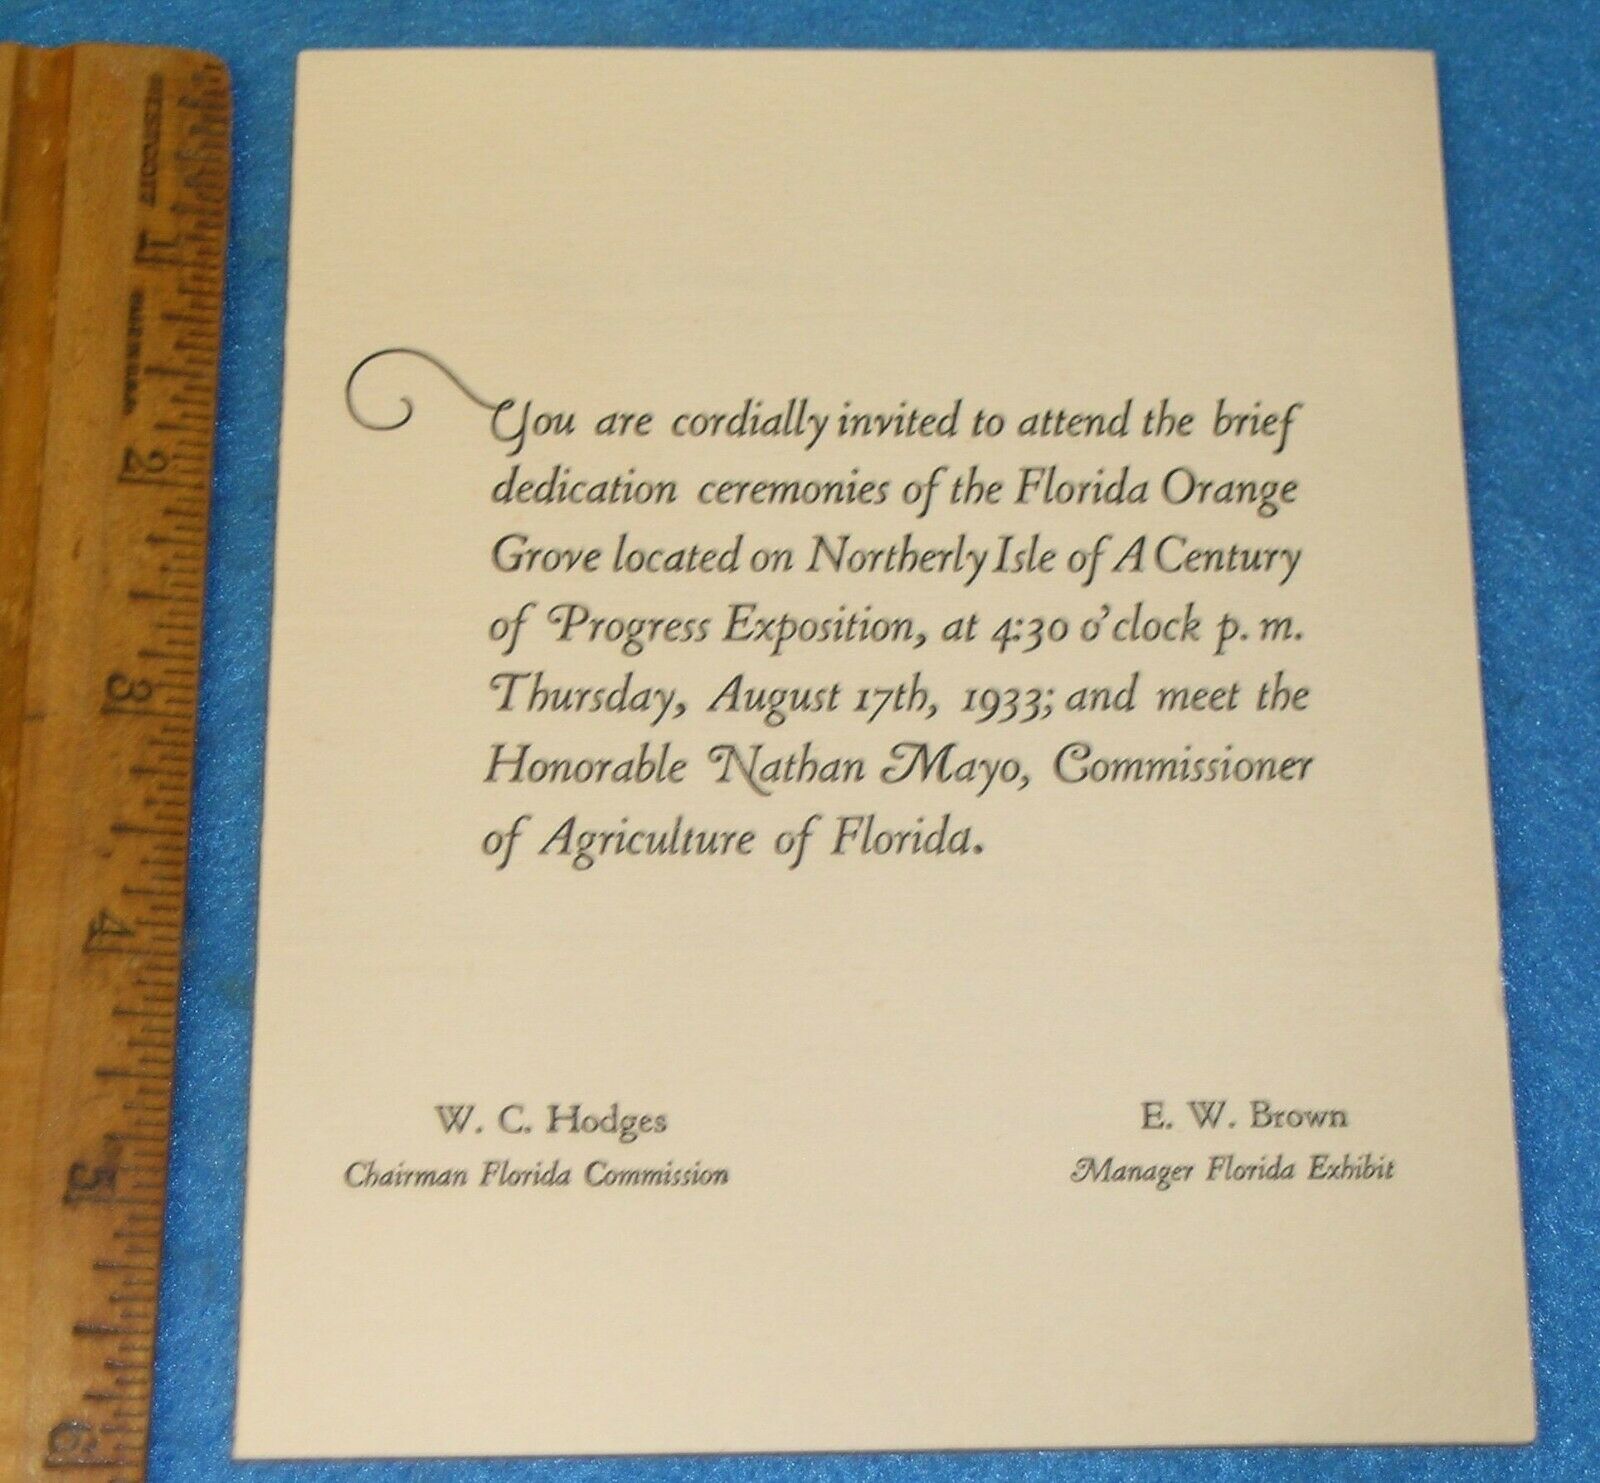 You are cordially invited to attend the brief
dedication ceremonies of the Florida Orange
Grove located on Northerly Isle of A Century
of Progress Exposition, at 4:30 o'clock p. m.
Thursday, August 17th, 1933; and meet the
Honorable Nathan Mayo, Commissioner
of Agriculture of Florida.
W. C. Hodges
Chairman Florida Commission
E. W. Brown
Manager Florida Exhibit
1
2
3
4
5
6